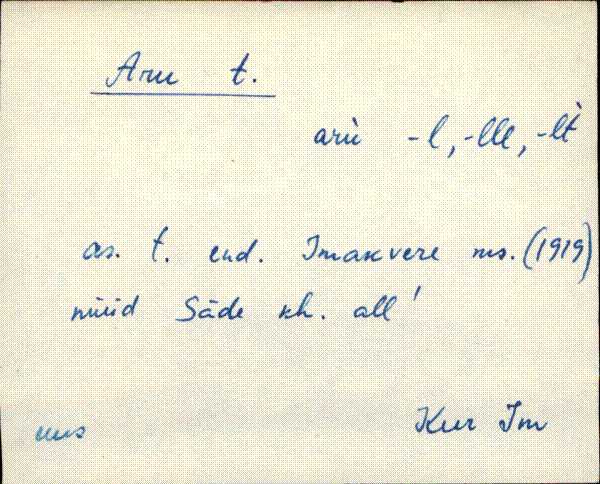 Aru t.
aru̇̀ -l, -lle, -lt̀
as. t. end. Imakvere ms. (1919)
nüüd Säde kh. all'
uus
Kur Im